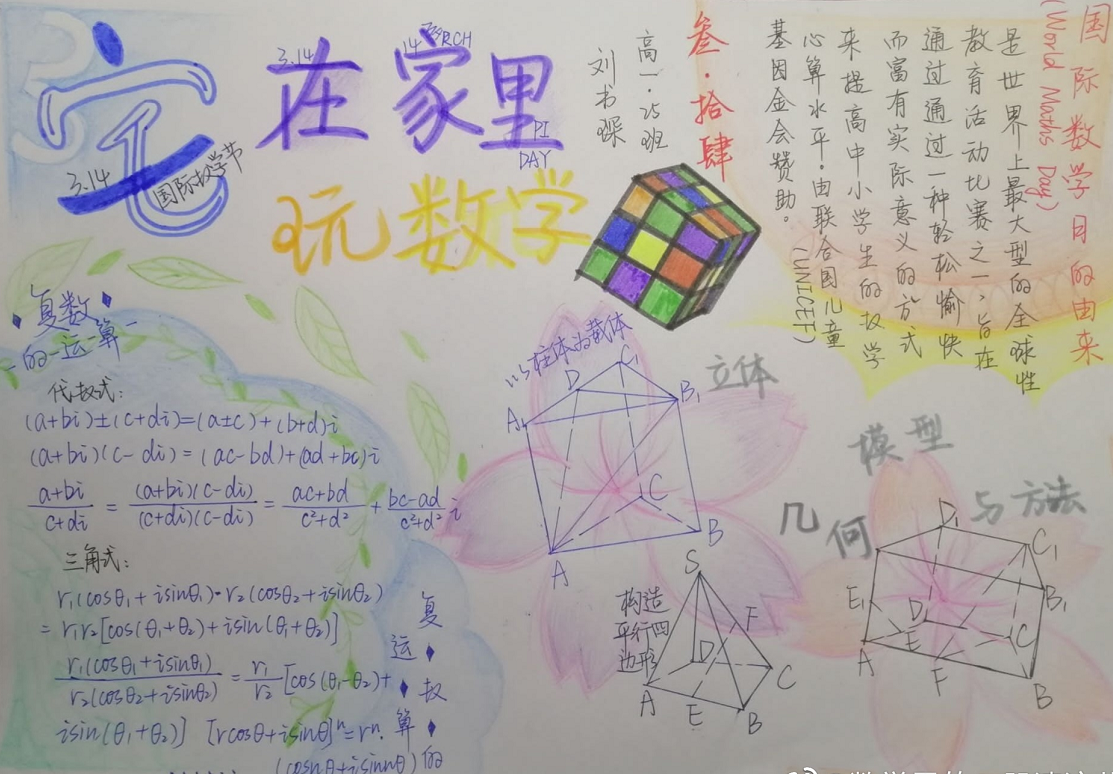 宅
3.14
国际数学节
3.14
在家里
14 MARCH
PI
DAY
玩数学
叁·拾肆
高一·25班
国际数学日的由来
(World Maths Day)
是世界上最大型的全球性
教育活动比赛之一,旨在
通过通过一种轻松愉快
而富有实际意义的方式
来提高中小学生的数学
心算水平·由联合国儿童
基因金会赞助。
(UNICEF)
复数
的运算
代数式:
(a+bi)±(c+di)=(a±c)+(b+d)i
(a+bi)(c-di)=(ac-bd)+(ad+bc)i
a+bi/c+di = (a+bi)(c-di)/(c+di)(c-di) = ac+bd/c²+d² + bc-ad/c²+d² i
三角式:
r₁(cosθ₁+isinθ₁)·r₂(cosθ₂+isinθ₂)
=r₁r₂[cos(θ₁+θ₂)+isin(θ₁+θ₂)]
r₁(cosθ₁+isinθ₁)/r₂(cosθ₂+isinθ₂) = r₁/r₂[cos(θ₁-θ₂)+
isin(θ₁+θ₂)] [rcosθ+isinθ]ⁿ=rⁿ·
(cosnθ+isinnθ)
复
数
的
运
算
柱体的截体
A₁
D
C₁
B₁
C
A
B
立体
几何
模型
与方法
构造
平行四
边形
S
F
D
C
A
E
B
D₁
C₁
E₁
B₁
D
E
C
A
F
B